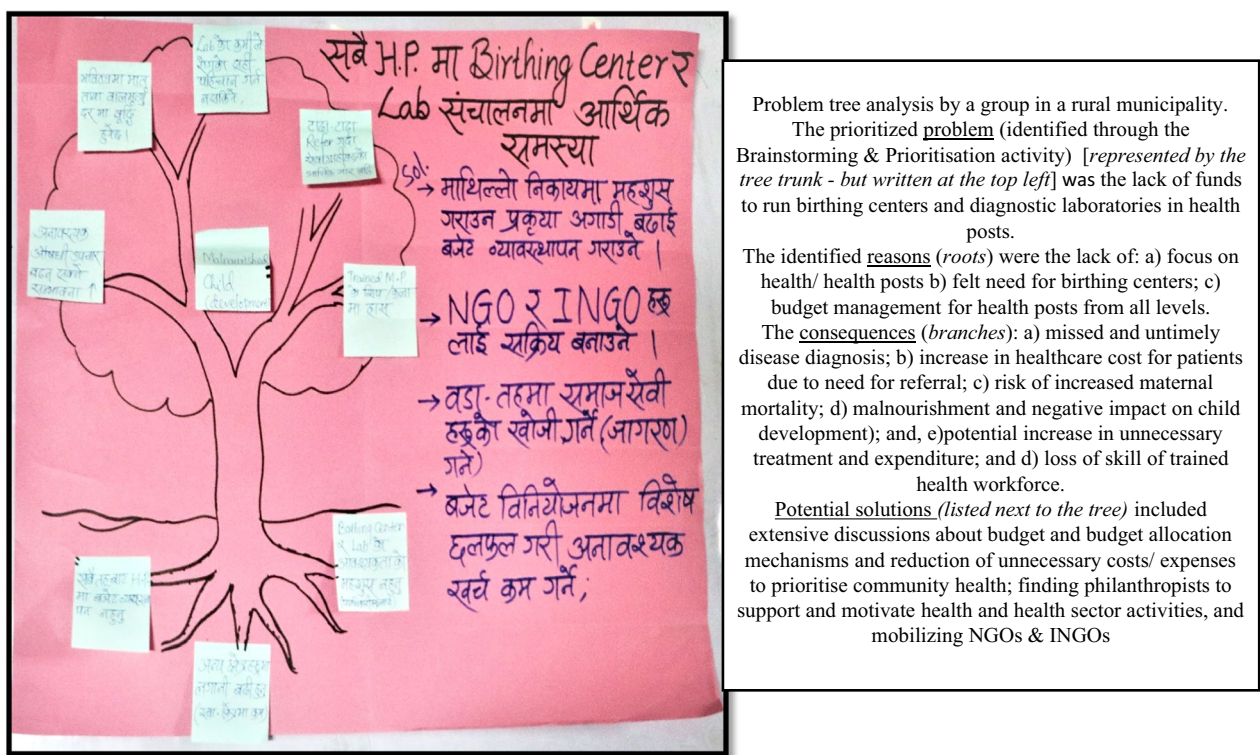 सबै H.P. मा Birthing Center र
Lab संचालनमा आर्थिक
समस्या
Sol.
→ माथिल्लो निकायमा महशुस
गराउन प्रकृया अगाडी बढाई
बजेट व्यावस्थापन गराउने ।
→ NGO र INGO हरु
लाई सक्रिय बनाउने ।
→ वडा-तहमा समाज सेवी
हरुको खोजी गर्ने (जागरण)
गर्ने)
→ बजेट विनियोजनमा विशेष
छलफल गरी अनावश्यक
खर्च कम गर्ने,
Lab का कमीले
रोगको सही
पहिचान गर्न
नसकिने,
भविष्यमा मातृ
तथा बालमृत्यु
दर मा वृद्धि
हुनेछ ।
टाढा-टाढा
Refer गर्नु
अनावश्यक
औषधी उपचार
बढ्न सक्ने
सम्भावना ↑
Malnourished
Child
(development
Trained M.P.
मा ह्रास
Birthing Center
र Lab को
आवश्यकता को
महशुस नहुनु
सबै तहबाट H.P.
मा बजेट
नहुनु
अन्य क्षेत्रहरुमा
लगानी बढी हुनु
Problem tree analysis by a group in a rural municipality.
The prioritized problem (identified through the
Brainstorming & Prioritisation activity)  [represented by the
tree trunk - but written at the top left] was the lack of funds
to run birthing centers and diagnostic laboratories in health
posts.
The identified reasons (roots) were the lack of: a) focus on
health/ health posts b) felt need for birthing centers; c)
budget management for health posts from all levels.
The consequences (branches): a) missed and untimely
disease diagnosis; b) increase in healthcare cost for patients
due to need for referral; c) risk of increased maternal
mortality; d) malnourishment and negative impact on child
development); and, e)potential increase in unnecessary
treatment and expenditure; and d) loss of skill of trained
health workforce.
Potential solutions (listed next to the tree) included
extensive discussions about budget and budget allocation
mechanisms and reduction of unnecessary costs/ expenses
to prioritise community health; finding philanthropists to
support and motivate health and health sector activities, and
mobilizing NGOs & INGOs